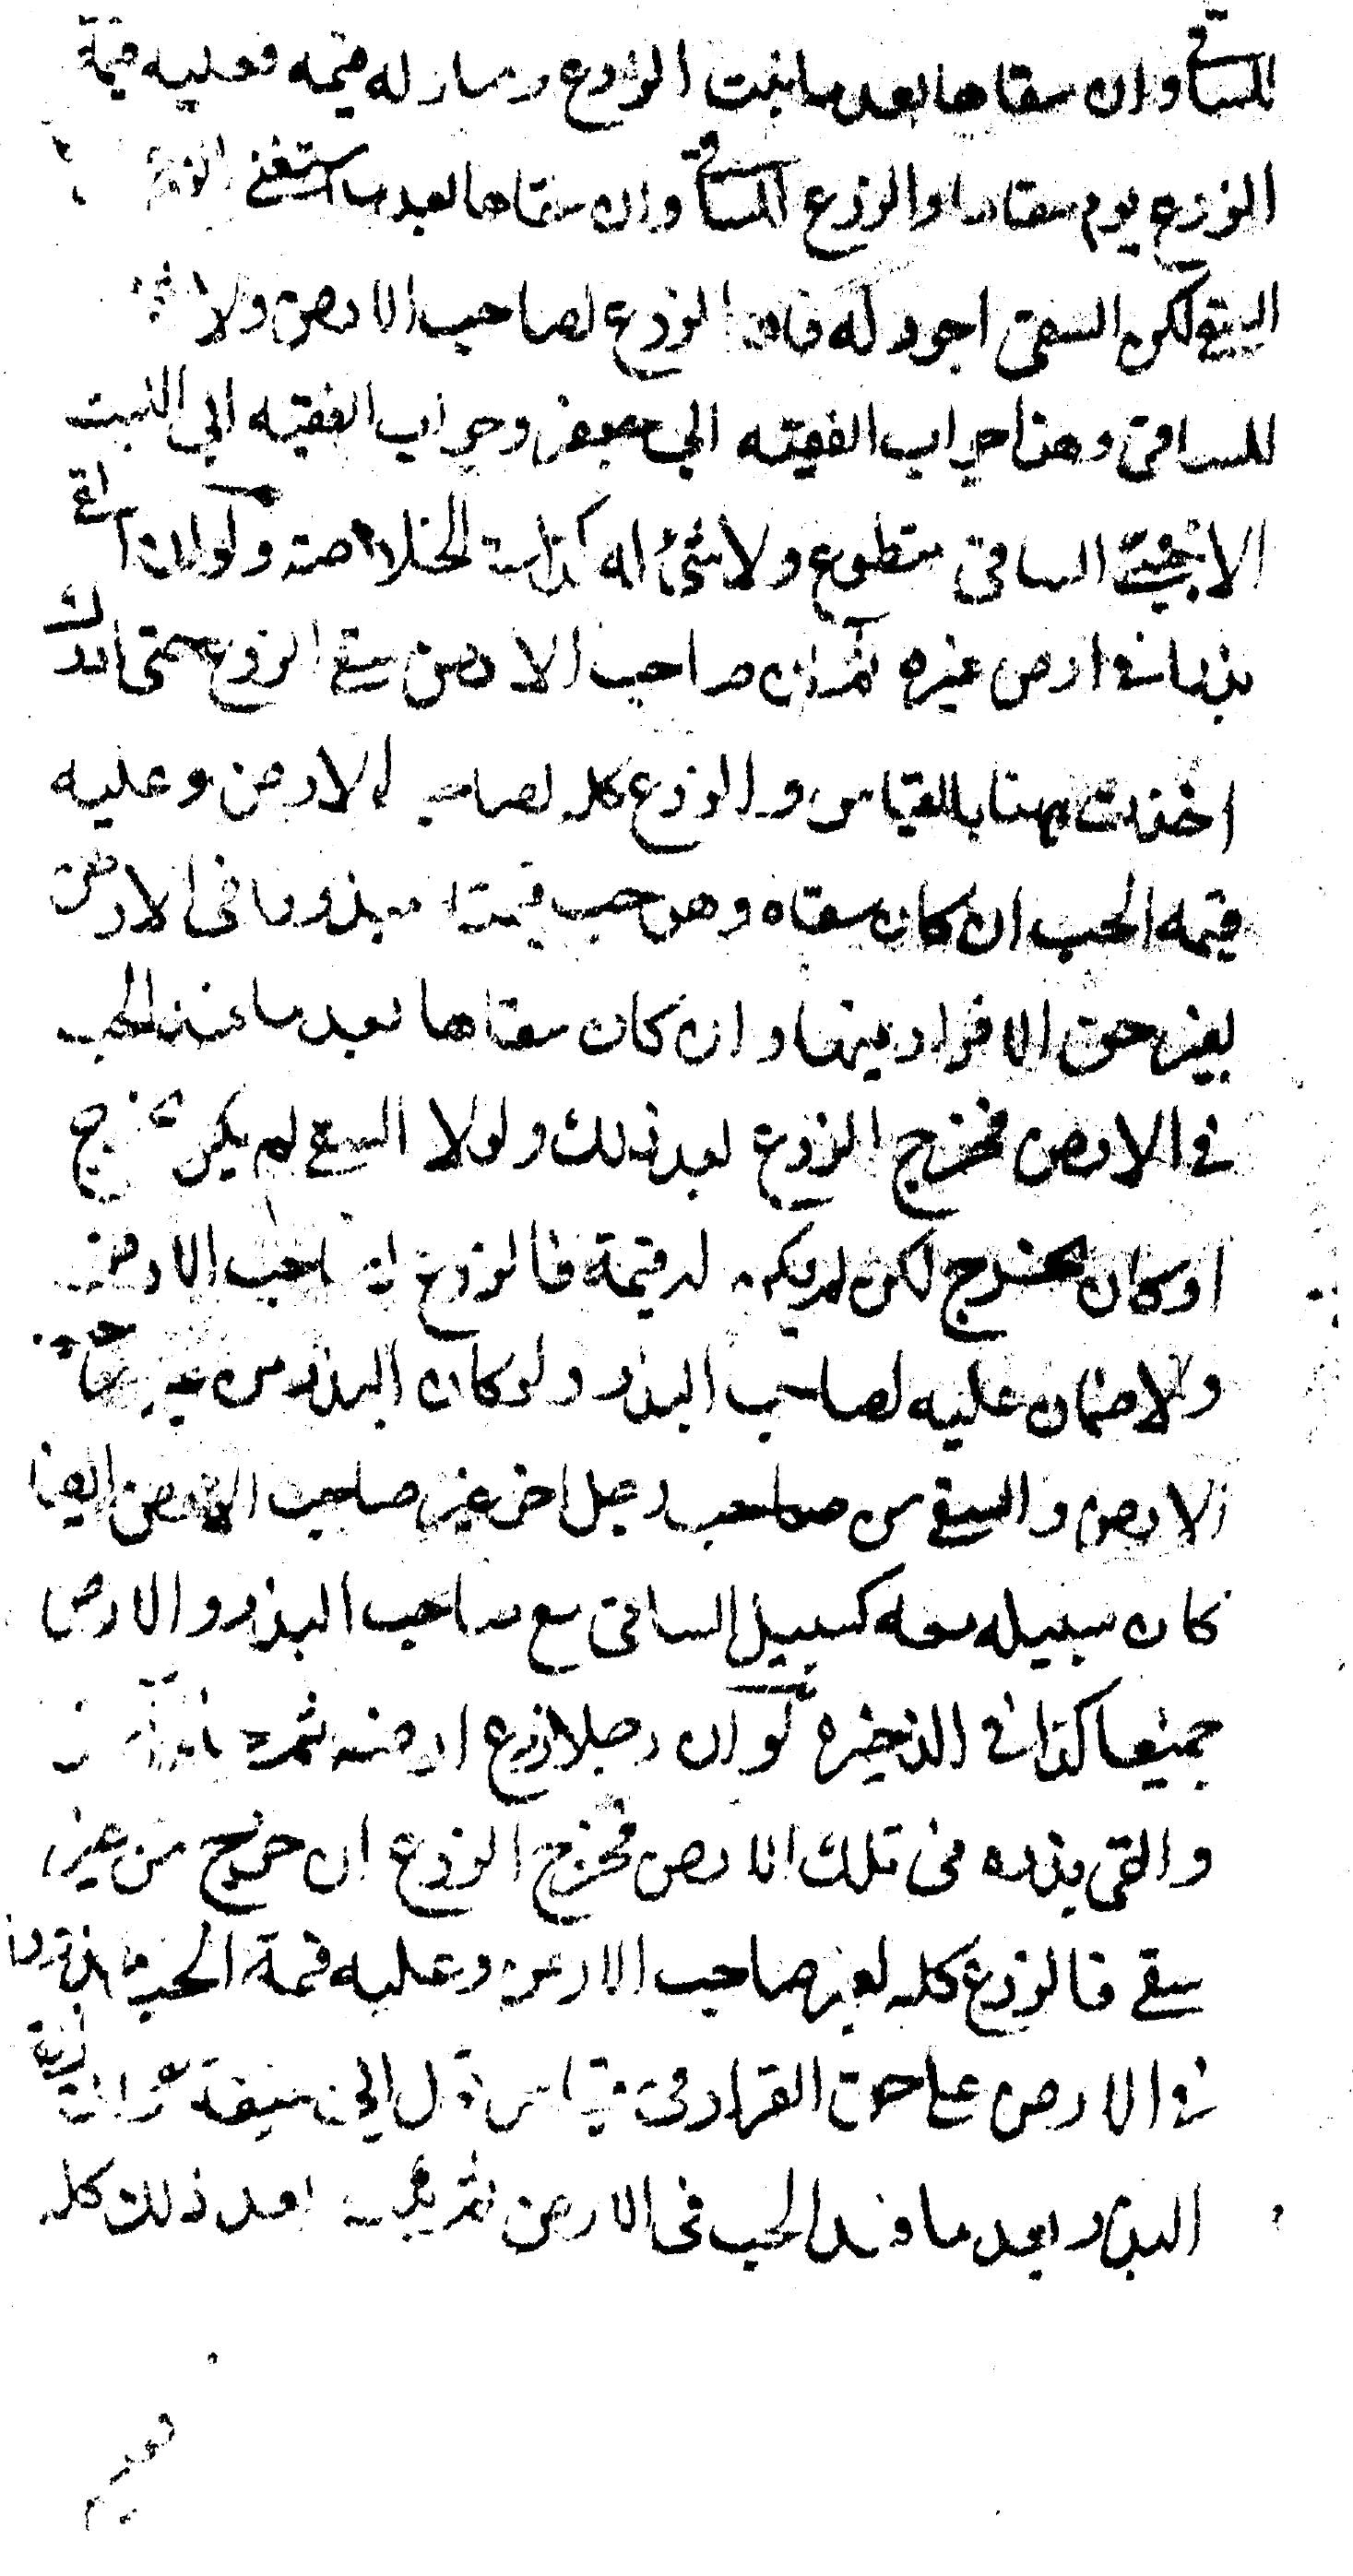 للساقي وان سقاها بعد ما نبت الزرع وصار له قيمة فعليه قيمة
الزرع يوم سقاها والزرع للساقي وان سقاها بعد ما استغنى الزرع
السقي لكن السقي اجود له فان الزرع لصاحب الارض ولا شئ
للساقي وهذا جواب الفقيه ابي جعفر وجواب الفقيه ابي الليث
الساقي متطوع ولا شئ له كذا في الخلاصة ولو ان
بذرا في ارض غيره ثم ان صاحب الارض سقى الزرع حتى ادرك
اخذت هنا بالقياس والزرع كله لصاحب الارض وعليه
قيمة الحب ان كان سقاه وهو حب قيمته مبذورا في الارض
بغير حق القرار فيها وان كان سقاها بعد ما فسد الحب
في الارض فخرج الزرع بعد ذلك ولولا السقي لم يكن يخرج
او كان يخرج لكن لم يكن له قيمة فالزرع لصاحب الارض
ولا ضمان عليه لصاحب البذر ولو كان البذر من غير صاحب
الارض والسقي من صاحب رجل اخر غير صاحب الارض ايضا
كان سبيله معه كسبيل الساقي مع صاحب البذر والارض
جميعا كذا في الذخيرة لو ان رجلا زرع ارضه ثم
والقى بذره في تلك الارض فخرج الزرع ان خرج من غير
سقي فالزرع كله لغير صاحب الارض وعليه قيمة الحب مبذورا
في الارض على حق القرار في قياس قول ابي حنيفة وان
البذر بعد ما فسد الحب في الارض ثم بعد ذلك كله